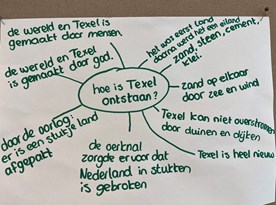 de wereld en Texel is
gemaakt door mensen
het was eerst land
daarna werd het een eiland.
zand, steen, cement,
klei.
de wereld en Texel
is gemaakt door god.
hoe is Texel
ontstaan?
zand op elkaar
door zee en wind
Texel kan niet overstromen
door duinen en dijken
door de oorlog:
er is een stukje land
afgepakt
de oerknal
zorgde ervoor dat
Nederland in stukken
is gebroken
Texel is heel nieuw